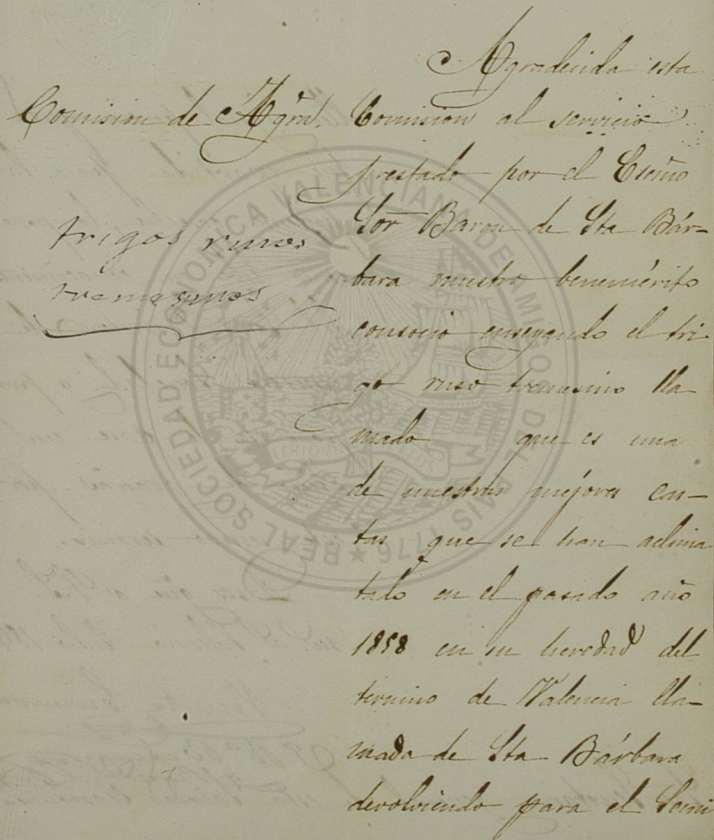 Comision de Agral.
trigos rusos
tremesinos
Agradecida esta
Comision al servicio
prestado por el Escmo
Sor Baron de Sta Bár-
bara nuestro benemérito
consocio ensayando el tri-
go ruso tremesino lla-
mado que es una
de nuestras mejores
que se han aclima
tado en el pasado año
1858 en su heredad del
termino de Valencia lla-
mada de Sta Bárbara
devolviendo para el Semi
REAL SOCIEDAD ECONOMICA VALENCIANA DE AMIGOS DEL PAIS 1776